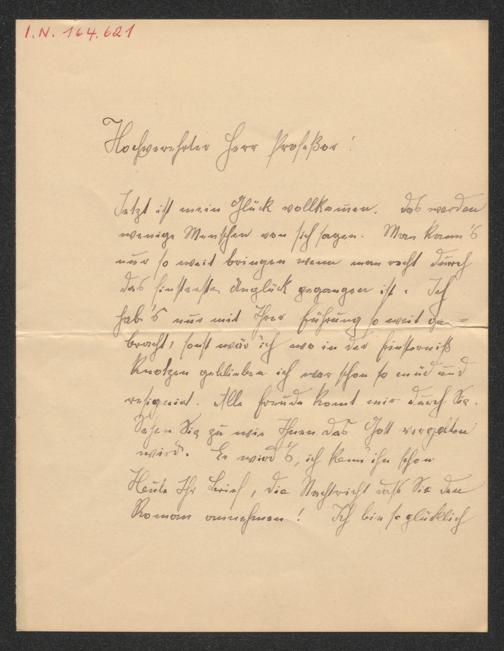 I.N. 164.621
Hochverehrter Herr Profeßor!
Jetzt ist mein Glück vollkomen. Das werden
wenige Menschen von sich sagen. Man kann's
nur so weit bringen wenn man recht durch
das finsterste Unglück gegangen ist. Ich
hab's nur mit Ihrer Führung so weit ge-
bracht, sonst wär ich wo in der Finsterniß
geblieben ich war schon so müd und
resigniert. Alle Freude komt mir durch Sie.
Sehen Sie zu wie Ihnen das Gott vergelten
wird. Er wird's, ich kenn ihn schon
Heute Ihr Brief, die Nachricht daß Sie den
Roman annehmen! Ich bin so glücklich